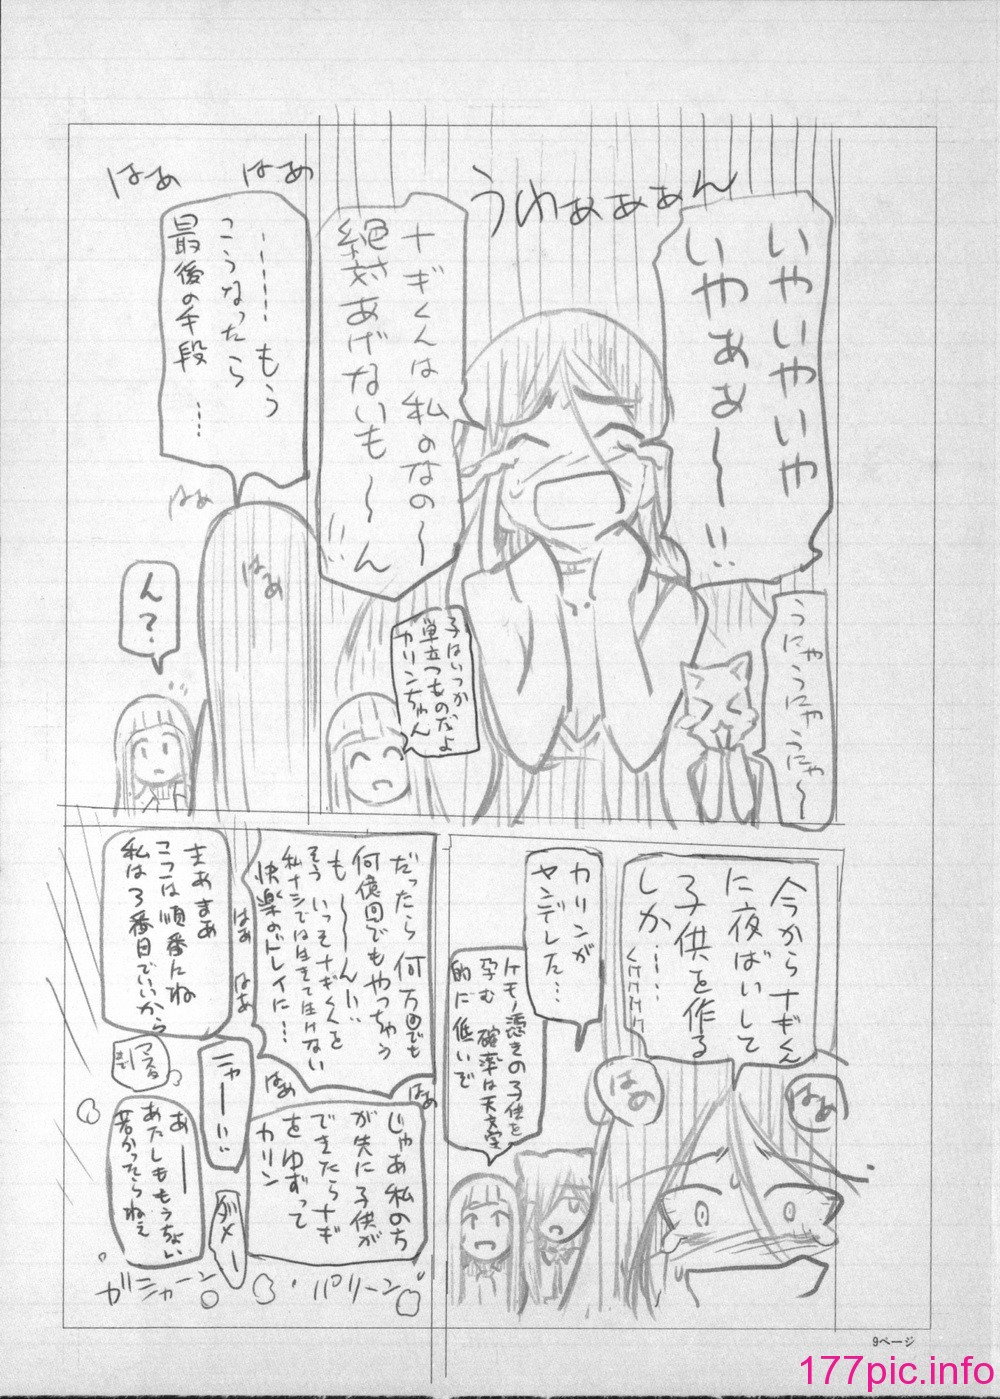 うわぁぁぁん
いやいやいや
いやぁぁ〜!!
うにゃうにゃうにゃ〜
ナギくんは私のなの〜
絶対あげないも〜ん!!
子はいつか
巣立つものだよ
カリンちゃん
はぁ
はぁ
……もう
こうなったら
最後の手段…
はぁ
はぁ
ん?
今からナギくん
に夜ばいして
子供を作る
しか……
くけけけけ
はぁ
はぁ
カリンが
ヤンデレした…
ケモノ憑きの子供を
孕む確率は天文学
的に低いぞ
だったら何万回でも
何億回でもやっちゃう
も〜〜ん!!
そういっそナギくんを
私ナシでは生きて生けない
快楽のドレイに…
はぁ
はぁ
はぁ
はぁ
まあまあ
ここは順番にね
私は3番目でいいから
じゃあ私のち
が先に子供が
できたらナギ
をゆずって
カリン
ニャーー!!
ダメー
あー
あたしももうちょい
若かったらねぇ
ガシャーン
パリーン
9ページ
177pic.info